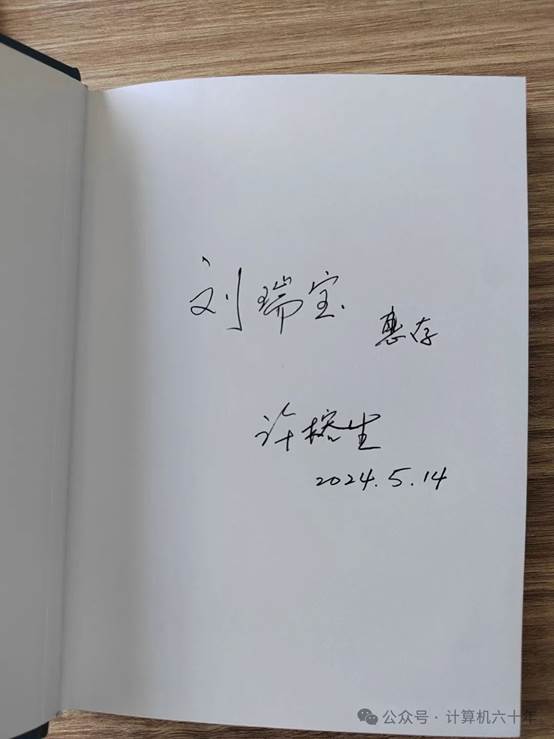 刘瑞宝 惠存
许榕生
2024.5.14
公众号·计算机六十年